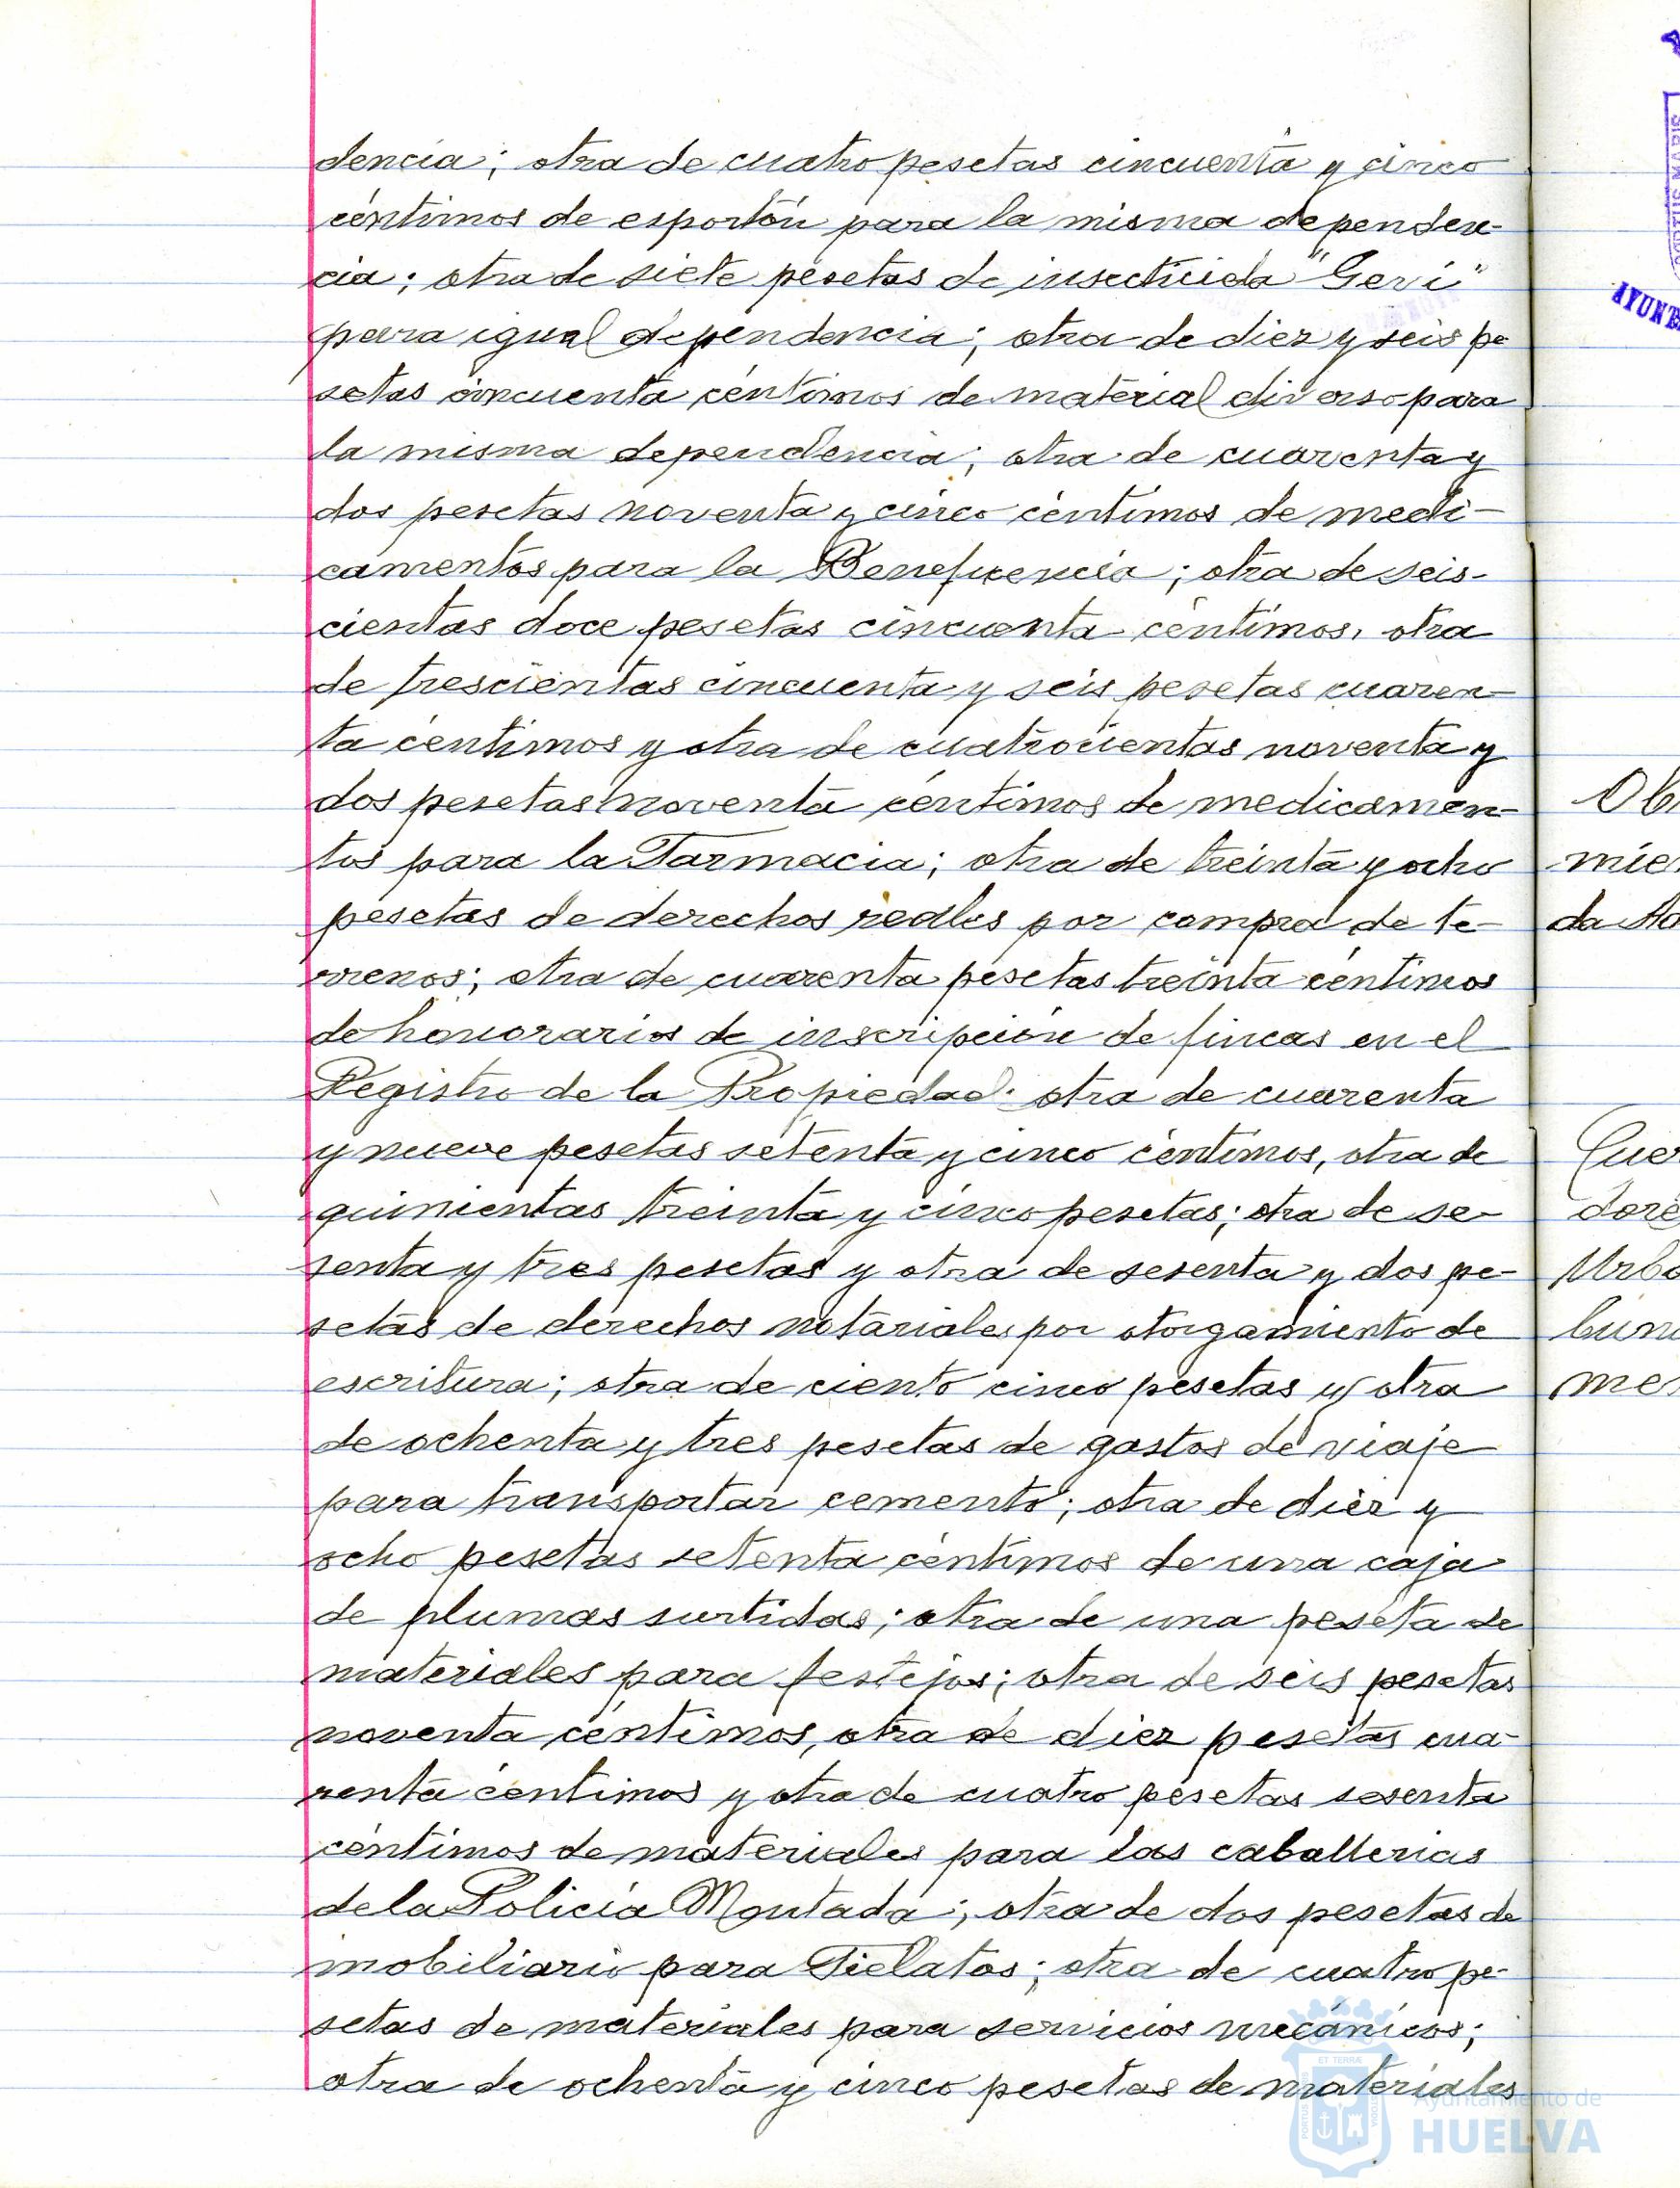 dencia; otra de cuatro pesetas cincuenta y cinco
céntimos de esportón para la misma dependen-
cia; otra de siete pesetas de insecticida "Gevi"
para igual dependencia; otra de diez y seis pe
setas cincuenta céntimos de material diverso para
la misma dependencia; otra de cuarenta y
dos pesetas noventa y cinco céntimos de medi-
camentos para la Beneficencia; otra de seis-
cientas doce pesetas cincuenta céntimos, otra
de trescientas cincuenta y seis pesetas cuaren-
ta céntimos y otra de cuatrocientas noventa y
dos pesetas noventa céntimos de medicamen-
tos para la Farmacia; otra de treinta y ocho
pesetas de derechos reales por compra de te-
rrenos; otra de cuarenta pesetas treinta céntimos
de honorarios de inscripción de fincas en el
Registro de la Propiedad; otra de cuarenta
y nueve pesetas setenta y cinco céntimos, otra de
quinientas treinta y cinco pesetas; otra de se-
senta y tres pesetas y otra de sesenta y dos pe-
setas de derechos notariales por otorgamiento de
escritura; otra de ciento cinco pesetas y otra
de ochenta y tres pesetas de gastos de viaje
para transportar cemento; otra de diez y
ocho pesetas setenta céntimos de una caja
de plumas surtidas; otra de una peseta de
materiales para festejos; otra de seis pesetas
noventa céntimos, otra de diez pesetas cua-
renta céntimos y otra de cuatro pesetas sesenta
céntimos de materiales para las caballerias
de la Policía Montada; otra de dos pesetas de
mobiliario para Fielatos; otra de cuatro pe-
setas de materiales para servicios mecánicos;
otra de ochenta y cinco pesetas de materiales
Ob
mie
da Ad
Cuer
dore
Urba
bun
me
PORTUS MARIS
AYUN
Ayuntamiento de
HUELVA